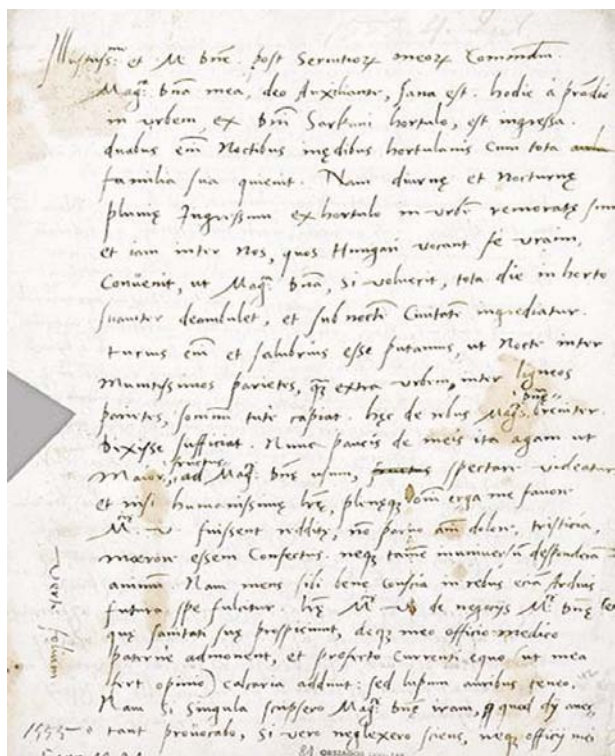 Illustriss: et M. Dne. post Servitiorx meorx Commendm.
Mag: Dna mea, deo Auxiliante, sana est. hodie à prandio
in urbem, ex Dni Sarkani hortulo, est ingressa.
duabus em Noctibus in ędibus hortulanis Cum tota
familia sua quievit. Nam diurnę et Nocturnę
pluvię Ingressum ex hortulo in urbem remoratę sunt
et iam inter Nos, quos Hungari vocant fę uraim,
Convenit, ut Mag: Dna, si voluerit, tota die in horto
suaviter deambulet, et sub noctem Civitatem ingrediatur.
Tutius em et salubrius esse putamus, ut Nocte inter
Munitissimos parietes, extra urbem, inter ligneos
parietes, somnum tute capiat. hęc de rebus Mag: Dnę breviter
Dixisse sufficiat. Nunc paucis de meis ita agam ut
Maior fructus ad Mag: Dnę usum, spectare videatur
et nisi humanissimę lrę, plenęq; omni erga me favore
M: V. fuissent redditę, no parvo animi dolore, tristicia,
moerore essem Confectus. neq; tamen in universum desponderem
animum. Nam mens sibi bene conscia in rebus etiam Arduis
futura spe fulcitur. lrę M: V. de negocijs M: Dnę
quę sanitati suę prospiciunt, deq; meo officio medico
paterne admonent, et profecto Currenti equo (ut mea
fert opinio) calcaria addunt: sed lupum auribus teneo.
Nam si singula scripsero Mag: Dnę iram, quod dij
provocabo, si vero neglexero sciens, neq; officij mei
verte folium
1555